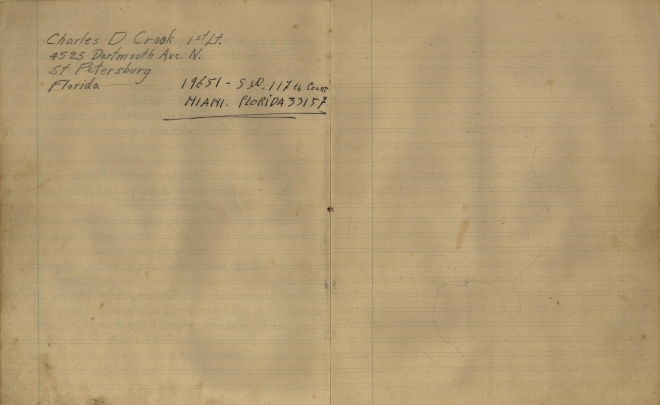 Charles D Crook 1st Lt.
4525 Dartmouth Ave. N.
St Petersburg
Florida
19651 - S.W. 117th Court
MIAMI. FLORIDA 33157